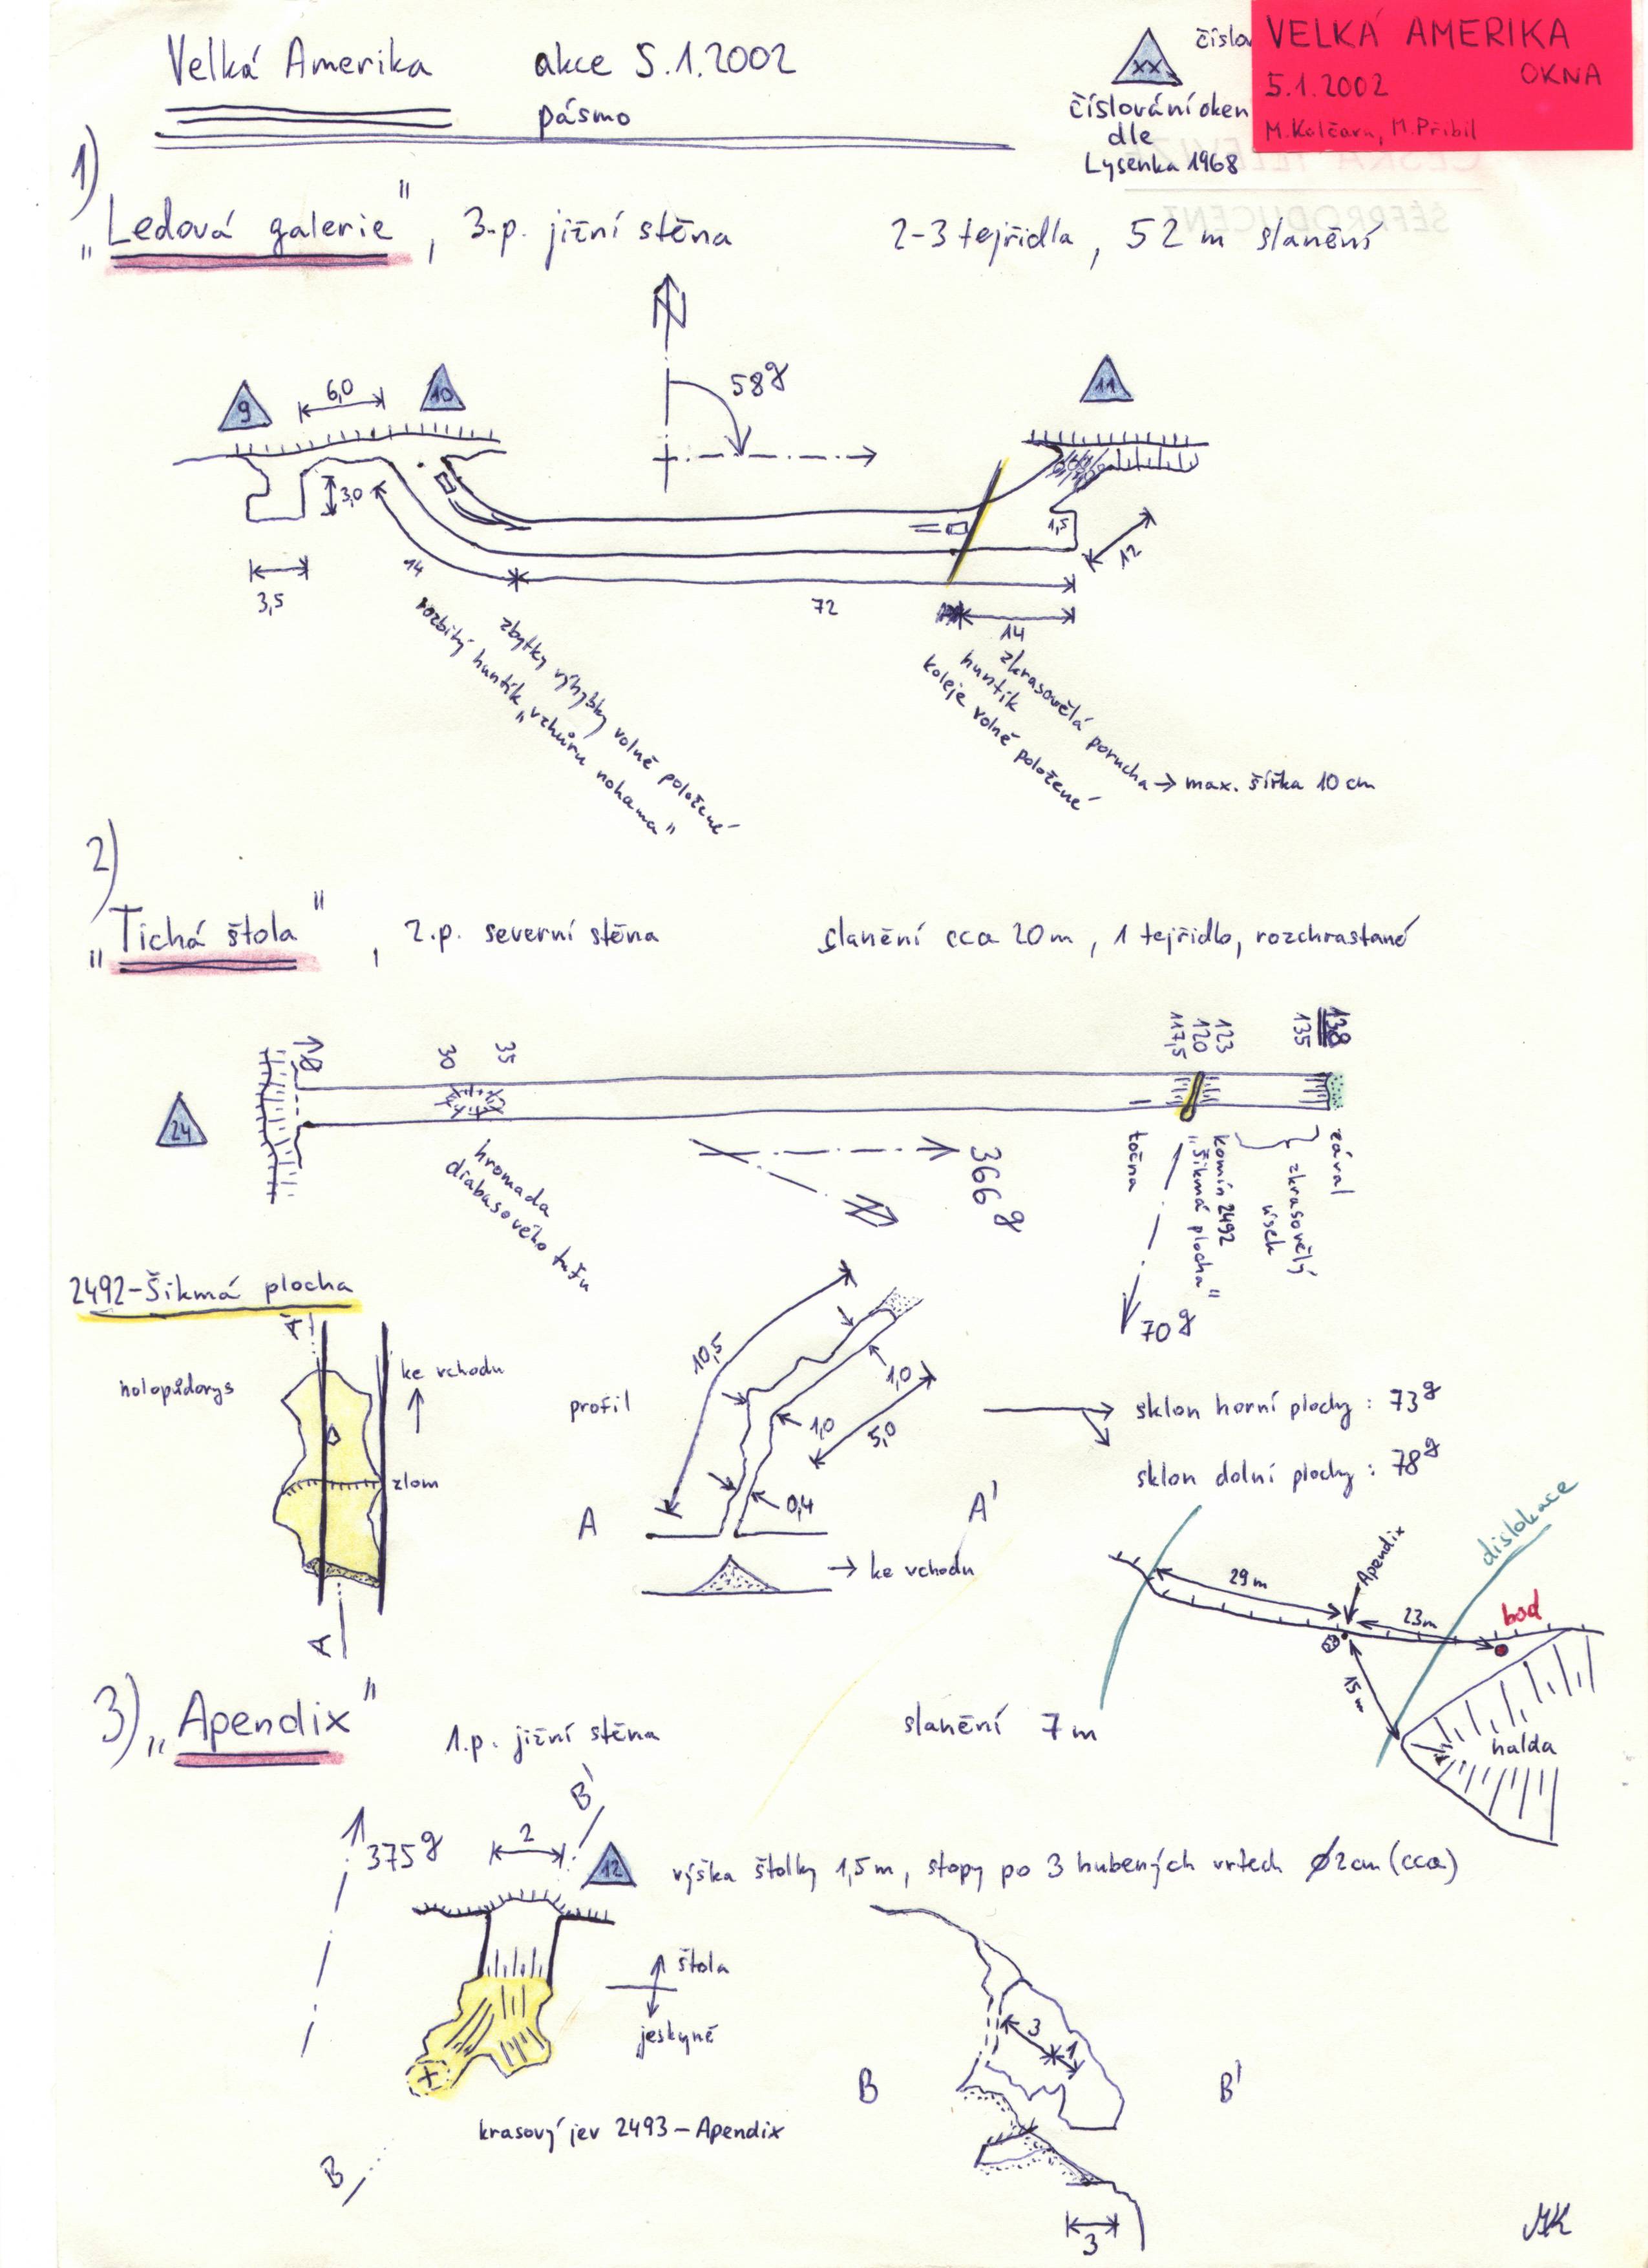 Velká Amerika
akce 5.1.2002
pásmo
xx
číslování oken
dle
Lysenka 1968
VELKÁ AMERIKA
OKNA
5.1.2002
M.Kolčava, M.Přibil
ČESKÁ TELEVIZE
ŠÉFPRODUCENT
1)
„Ledová galerie“, 3.p. jižní stěna
2-3 tejřidla, 52 m slanění
N
58g
9
6,0
10
11
3,0
1,5
12
3,5
14
72
14
zbytky výhybky volně položené
rozbitý huntík „vzhůru nohama“
zkrasovělá porucha → max. šířka 10 cm
huntík
koleje volně položené
2)
„Tichá štola“, 2.p. severní stěna
slanění cca 20m, 1 tejřidlo, rozchrastané
0
30
35
117,5
120
123
135
138
24
hromada
diabasového tufu
366g
točna
„šikmá plocha“
komín 2492
zkrasovělý
úsek
zával
70g
2492-Šikmá plocha
A'
holopůdorys
ke vchodu
zlom
A
profil
10,5
1,0
1,0
5,0
0,4
A
A'
→ ke vchodu
sklon horní plochy: 73g
sklon dolní plochy: 78g
dislokace
29 m
Apendix
23m
bod
15m
halda
3) „Apendix“
1.p. jižní stěna
slanění 7m
B'
375g
2
12
výška štolky 1,5m, stopy po 3 hubených vrtech ⌀2cm (cca)
štola
jeskyně
3
1
B
B'
krasový jev 2493 - Apendix
B
3
MK